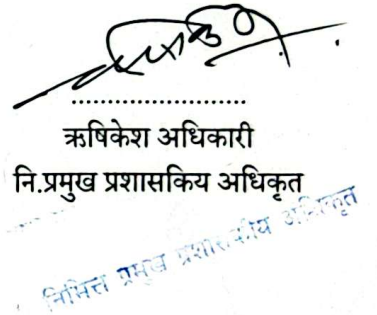 ..............................
ऋषिकेश अधिकारी
नि.प्रमुख प्रशासकिय अधिकृत
निमित्त प्रमुख प्रशासकीय अधिकृत